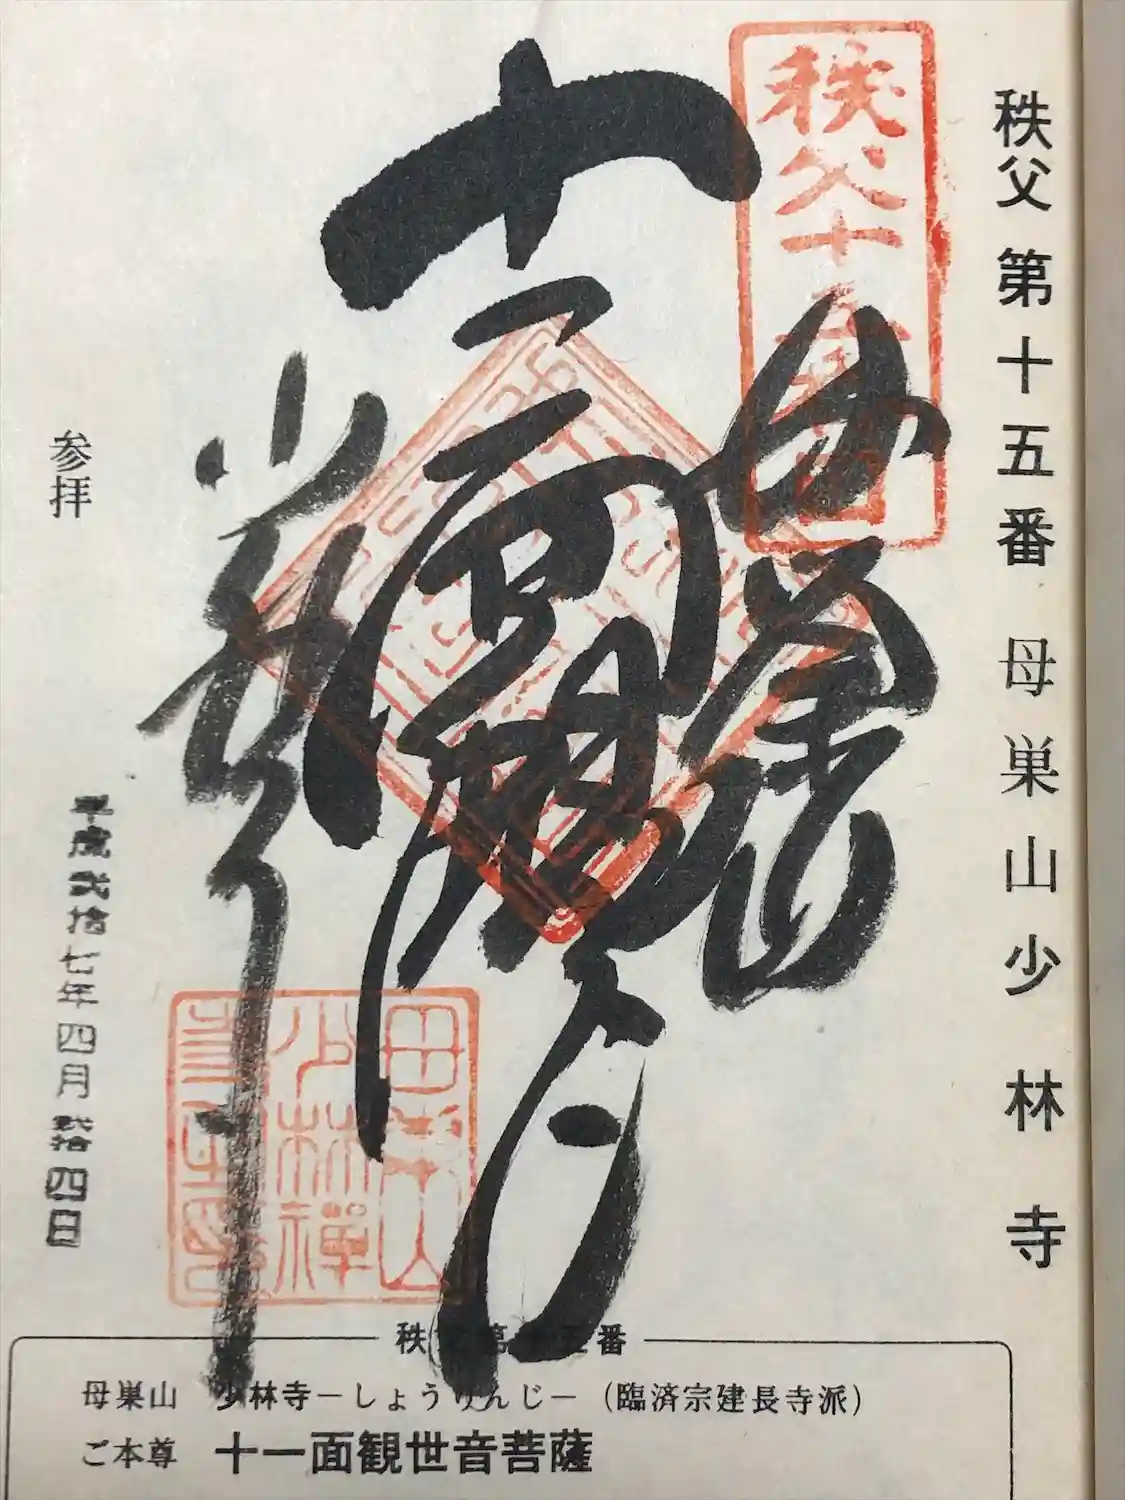 秩父第十五番 母巣山少林寺
秩父十五番
母巣山
十一面観音
少林寺
参拝
平成弐拾七年四月弐拾四日
秩父第十五番
母巣山 少林寺－しょうりんじ－（臨済宗建長寺派）
ご本尊 十一面観世音菩薩